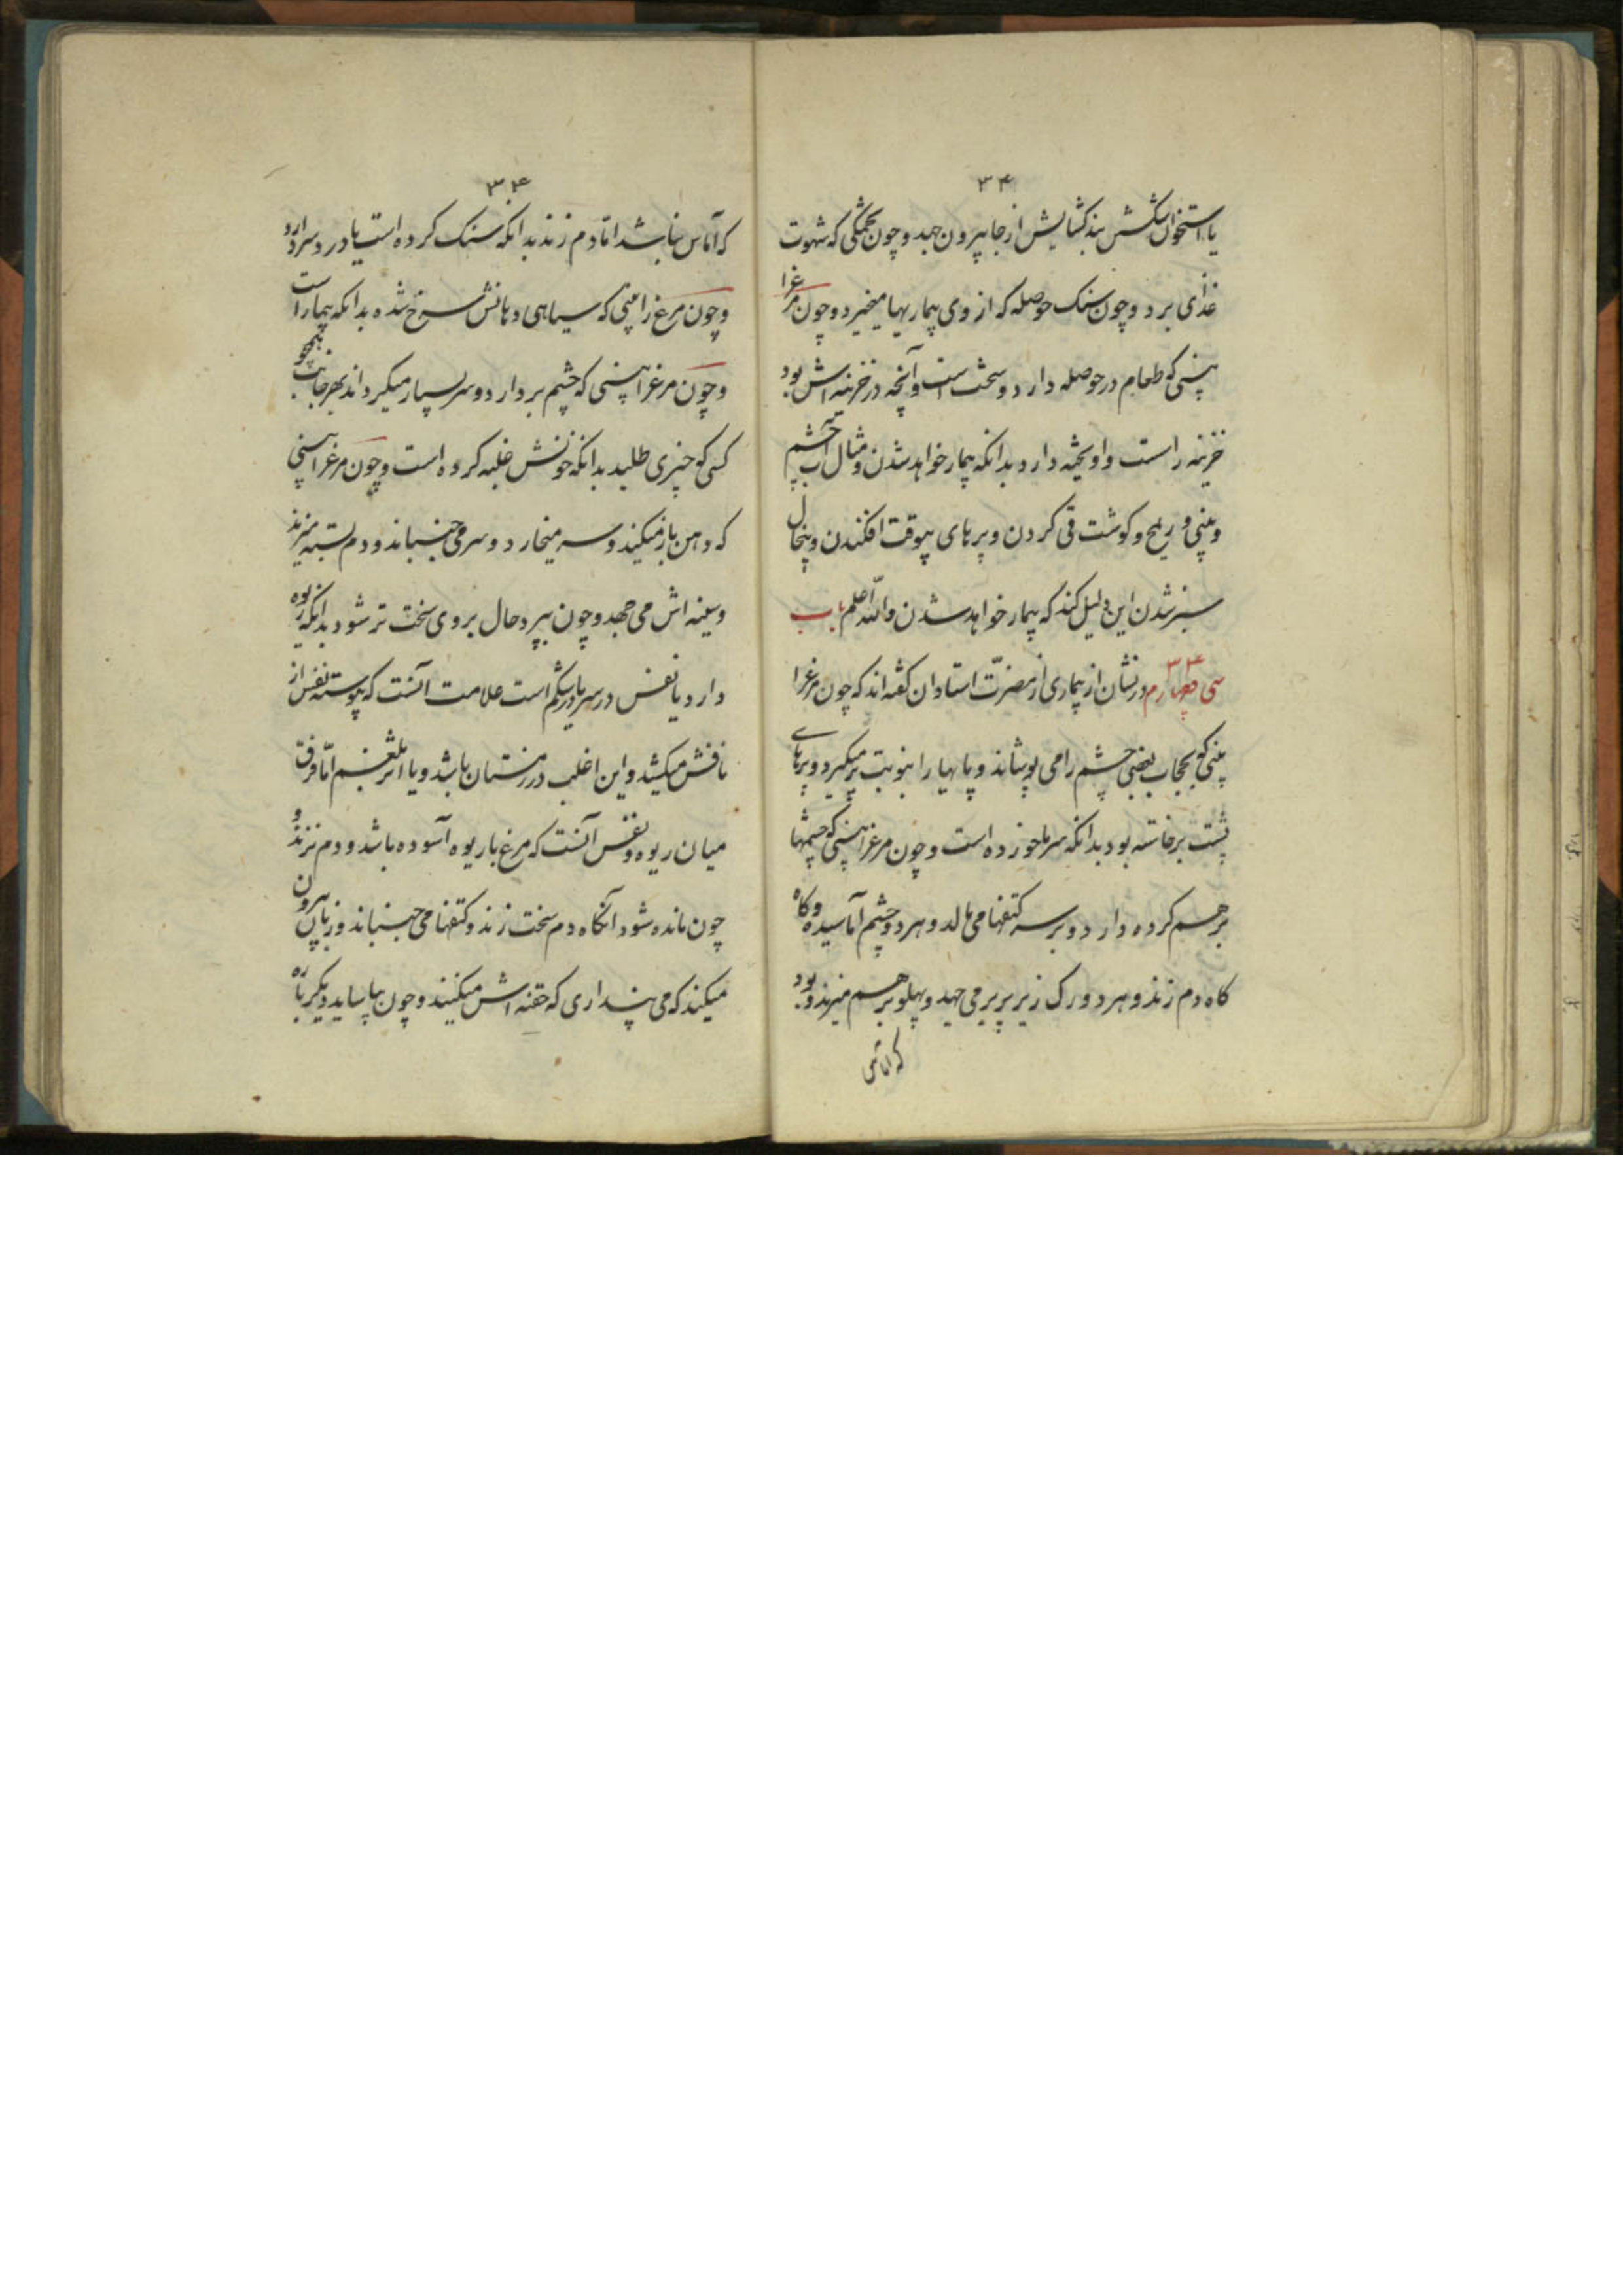 ۳۴
یا استخوان شکستش بند کشایش از جا بیرون جهد و چون تخمکی که شهوت
غذای برد و چون سنک حوصله که از وی بیماریها میخیزد و چون مرغرا
بینی که طعام در حوصله دارد و سخت است و آنچه در خزینه اش بود
خزینه راست و اویخته دارد بدانکه بیمار خواهد شدن و مثال آب چشم
و بینی و ریح و کوشت قی کردن و پرهای بیوقت افکندن و پیخال
سبز شدن این دلیل کند که بیمار خواهد شدن والله اعلم باب
سی و چهارم ۳۴ در نشان از بیماری از مضرت استادان کفته اند که چون مرغرا
بینی که بحجاب بعضی چشم را می پوشاند و پایها را بنوبت برمیکیرد و پرهای
پشت برخاسته بود بدانکه سرما خورده است و چون مرغرا بینی که چشمها
برهم کرده دارد و بر سر کتفها می مالد و هر دو چشم آماسیده و کاه
کاه دم زند و هر دو رک زیر پر می جهد و پهلو برهم میزند و بود
که اماس
۳۴
که آماس نباشد اما دم زند بدانکه سنک کرده است یا درد سر دارد
و چون مرغ را بینی که سیاهی دهانش سرخ شده بدانکه بیمار است
و چون مرغرا بینی که چشم بردارد و سر بسیار میکرداند بهر جانب همچو
کسی که چیزی طلبد بدانکه خونش غلبه کرده است و چون مرغرا بینی
که دهن باز میکند و سر میخارد و سر می جنباند و دم بسته میزند
و سینه اش می جهد و چون بپرد حال بر وی سخت تر شود بدانکه ریوه
دارد یا نفس در سر یا در شکم است علامت آنست که پیوسته نفس از
نافش میکشد و این اغلب در زمستان باشد و یا اثر بلغم اما فرق
میان ریوه و نفس آنست که مرغ با ریوه آسوده باشد و دم نزند و
چون مانده شود آنکاه دم سخت زند و کتفها می جنباند و زبان بیرون
میکند که می پنداری که حقنه اش میکنند و چون بیاساید دیکر باه